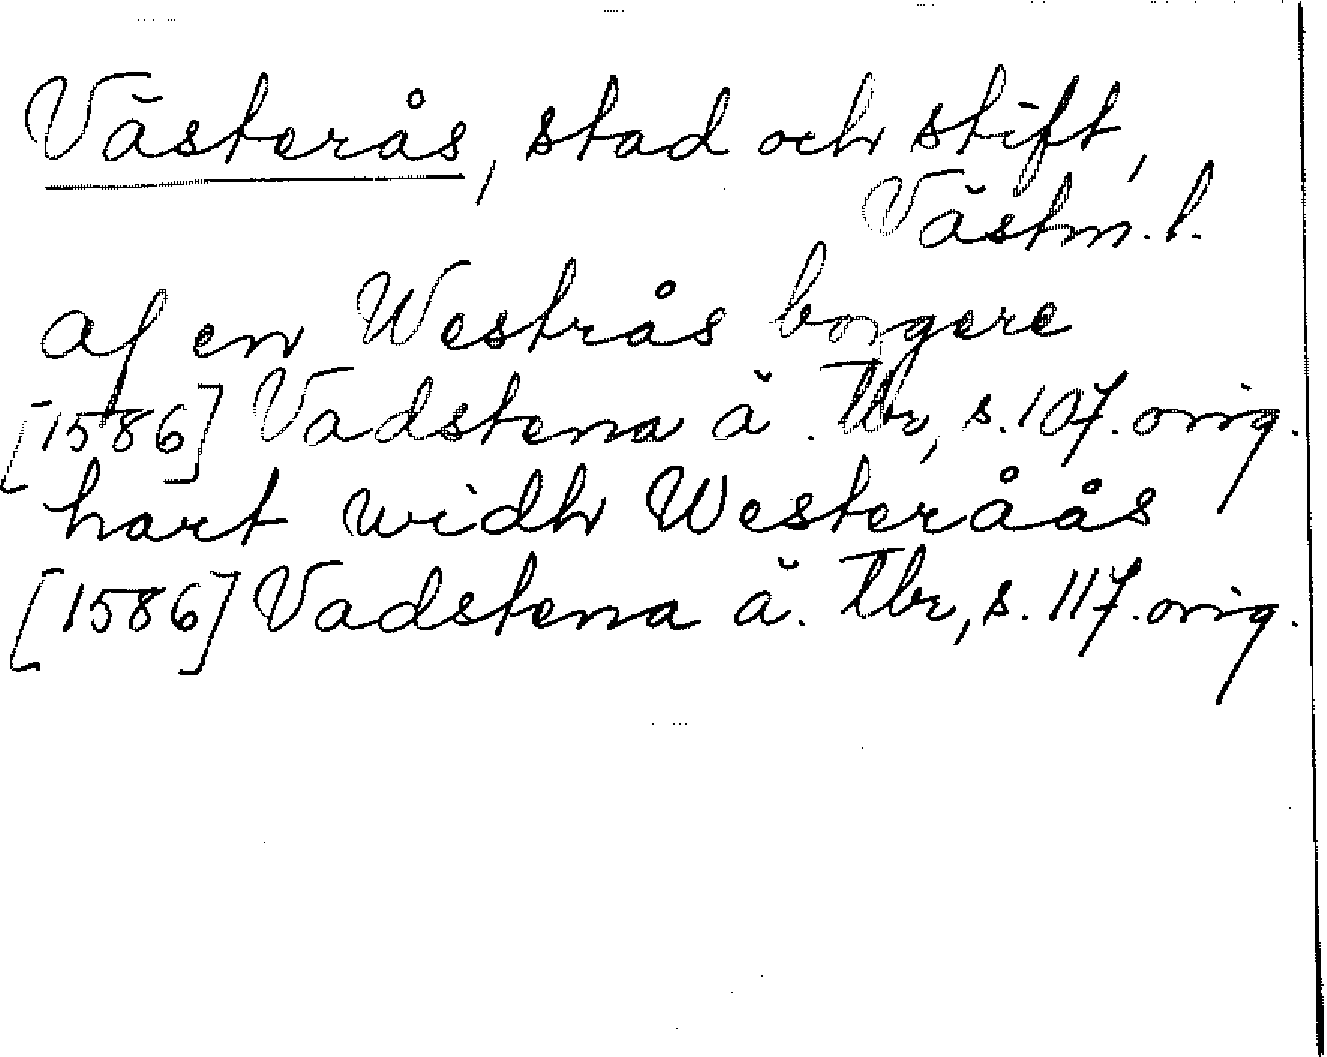 Västerås, stad och stift,
Västm. l.
af en Westrås borgere
[1586] Vadstena ä. Tbr, s. 107. orig.
hart widh Westeråås
[1586] Vadstena ä. Tbr, s. 117. orig.